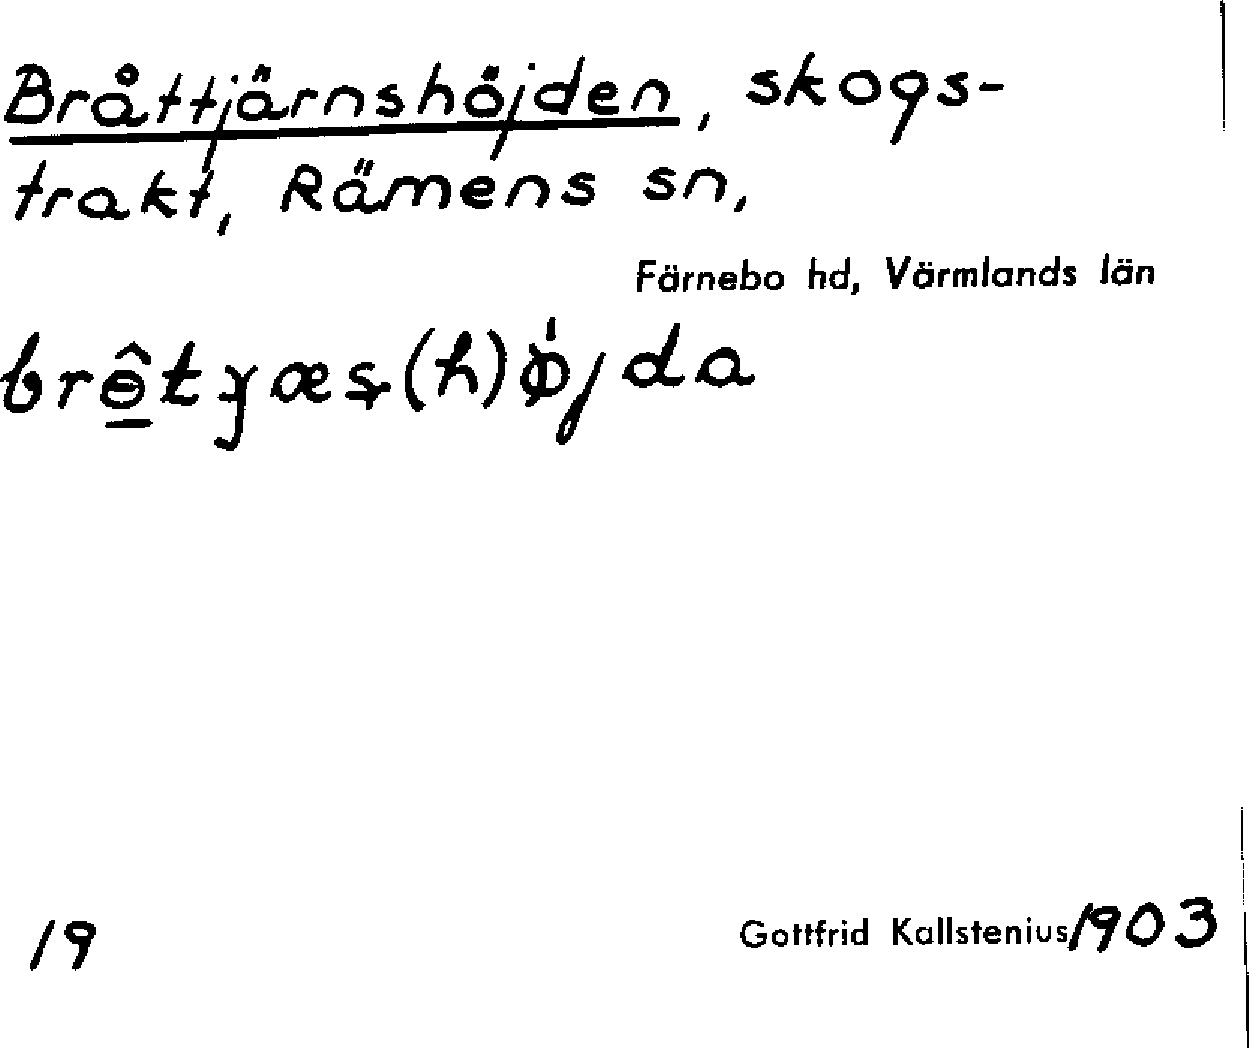 Bråttjärnshöjden, skogs-
trakt, Rämens sn,
Färnebo hd, Värmlands län
19
Gottfrid Kallstenius/1903